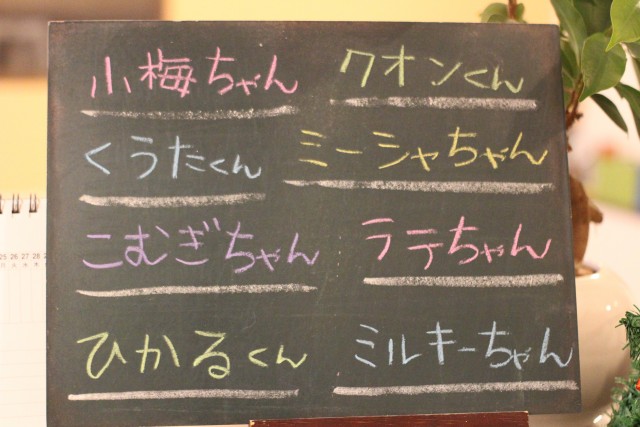 小梅ちゃん クオンくん
くうたくん ミーシャちゃん
こむぎちゃん ラテちゃん
ひかるくん ミルキーちゃん
25 26 27 28